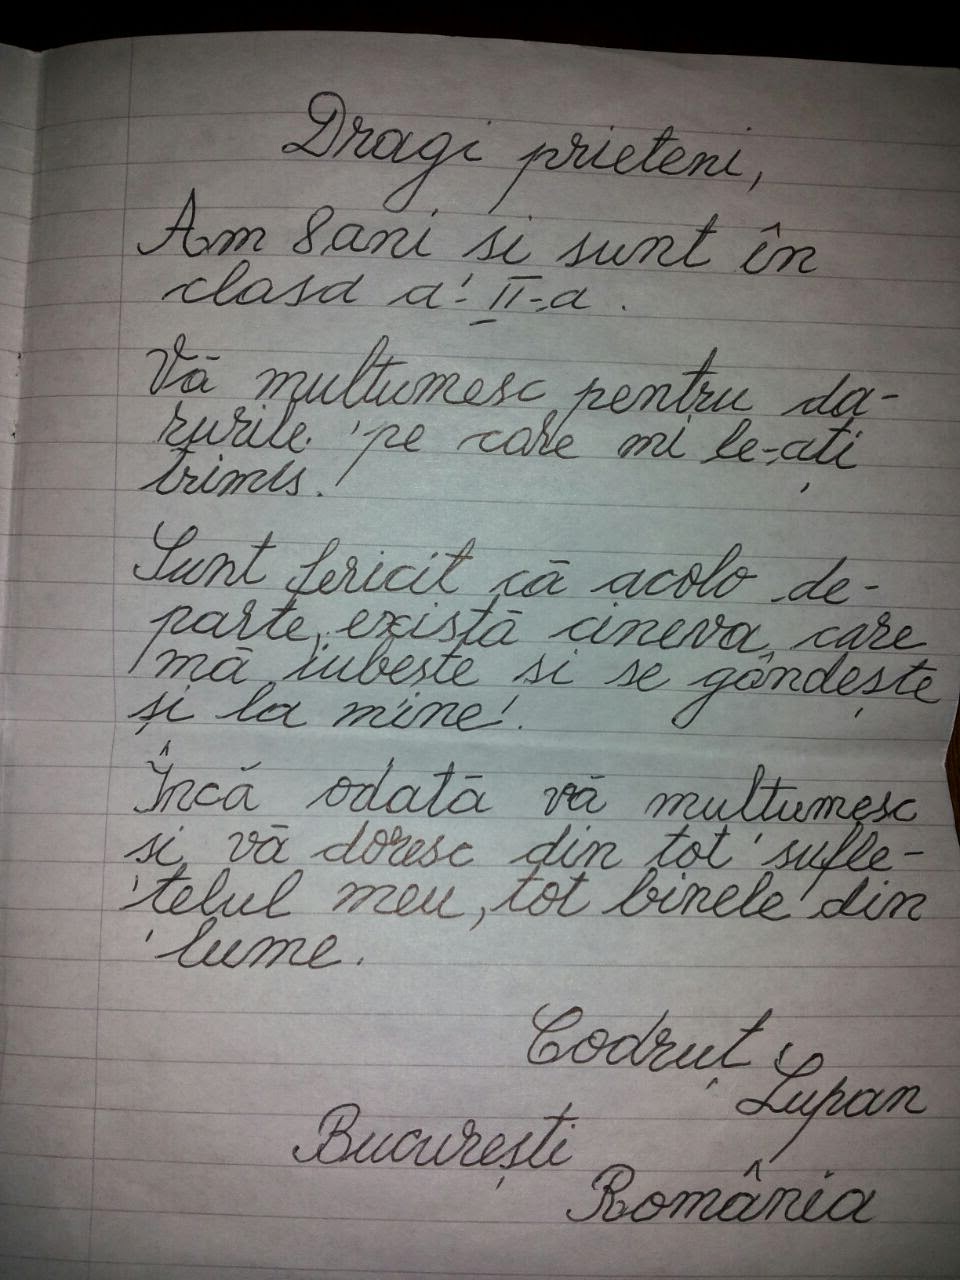 Dragi prieteni,
Am 8 ani si sunt în
clasa a-II-a.
Vă multumesc pentru da-
rurile pe care mi le-ați
trimis.
Sunt fericit că acolo de-
parte, există cineva, care
mă iubește si se gândește
și la mine.
Încă odată vă multumesc
si vă doresc din tot sufle-
telul meu, tot binele din
lume.
Codruț Lupan
București
România